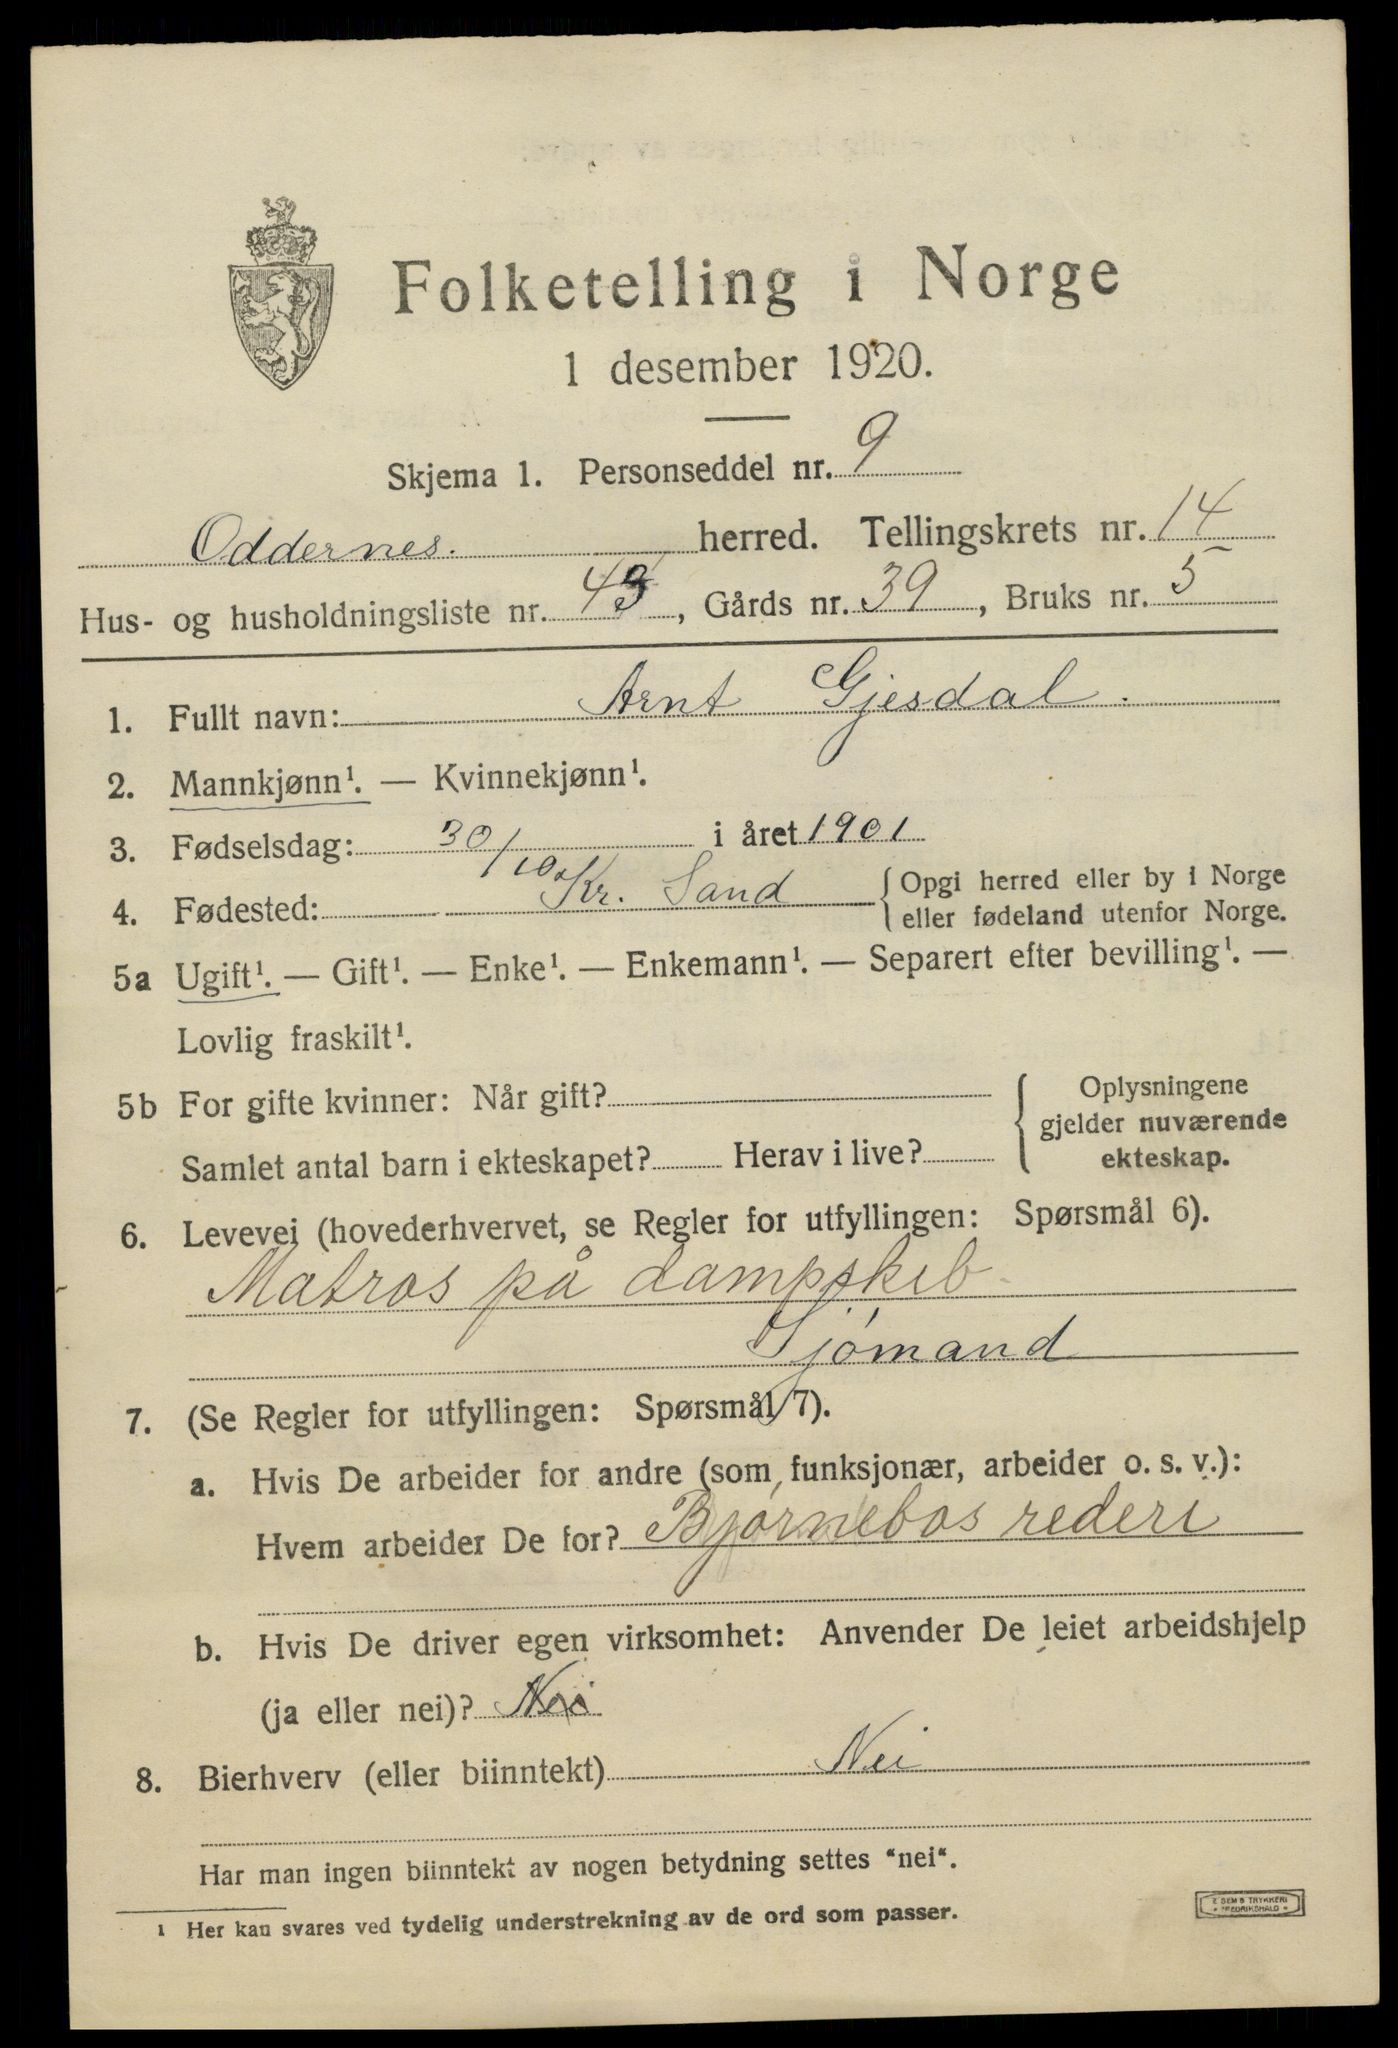 Folketelling i Norge
1 desember 1920.
Skjema 1. Personseddel nr. 9
Oddernes. herred. Tellingskrets nr. 14
Hus- og husholdningsliste nr. 43, Gårds nr. 39, Bruks nr. 5
1. Fullt navn: Arnt Gjesdal.
2. Mannkjønn¹. — Kvinnekjønn¹.
3. Fødselsdag: 30/10 i året 1901
4. Fødested: Kr. Sand { Opgi herred eller by i Norge
eller fødeland utenfor Norge.
5a Ugift¹. — Gift¹. — Enke¹. — Enkemann¹. — Separert efter bevilling¹. —
Lovlig fraskilt¹.
5b For gifte kvinner: Når gift?
Samlet antal barn i ekteskapet? Herav i live?
{ Oplysningene
gjelder nuværende
ekteskap.
6. Levevei (hovederhvervet, se Regler for utfyllingen: Spørsmål 6).
Matros på dampskib
Sjømand
7. (Se Regler for utfyllingen: Spørsmål 7).
a. Hvis De arbeider for andre (som funksjonær, arbeider o. s. v.):
Hvem arbeider De for? Bjørnebos rederi
b. Hvis De driver egen virksomhet: Anvender De leiet arbeidshjelp
(ja eller nei)? Nei
8. Bierhverv (eller biinntekt) Nei
Har man ingen biinntekt av nogen betydning settes "nei".
¹ Her kan svares ved tydelig understrekning av de ord som passer.
E SEM'S TRYKKERI
FREDRIKSHALD